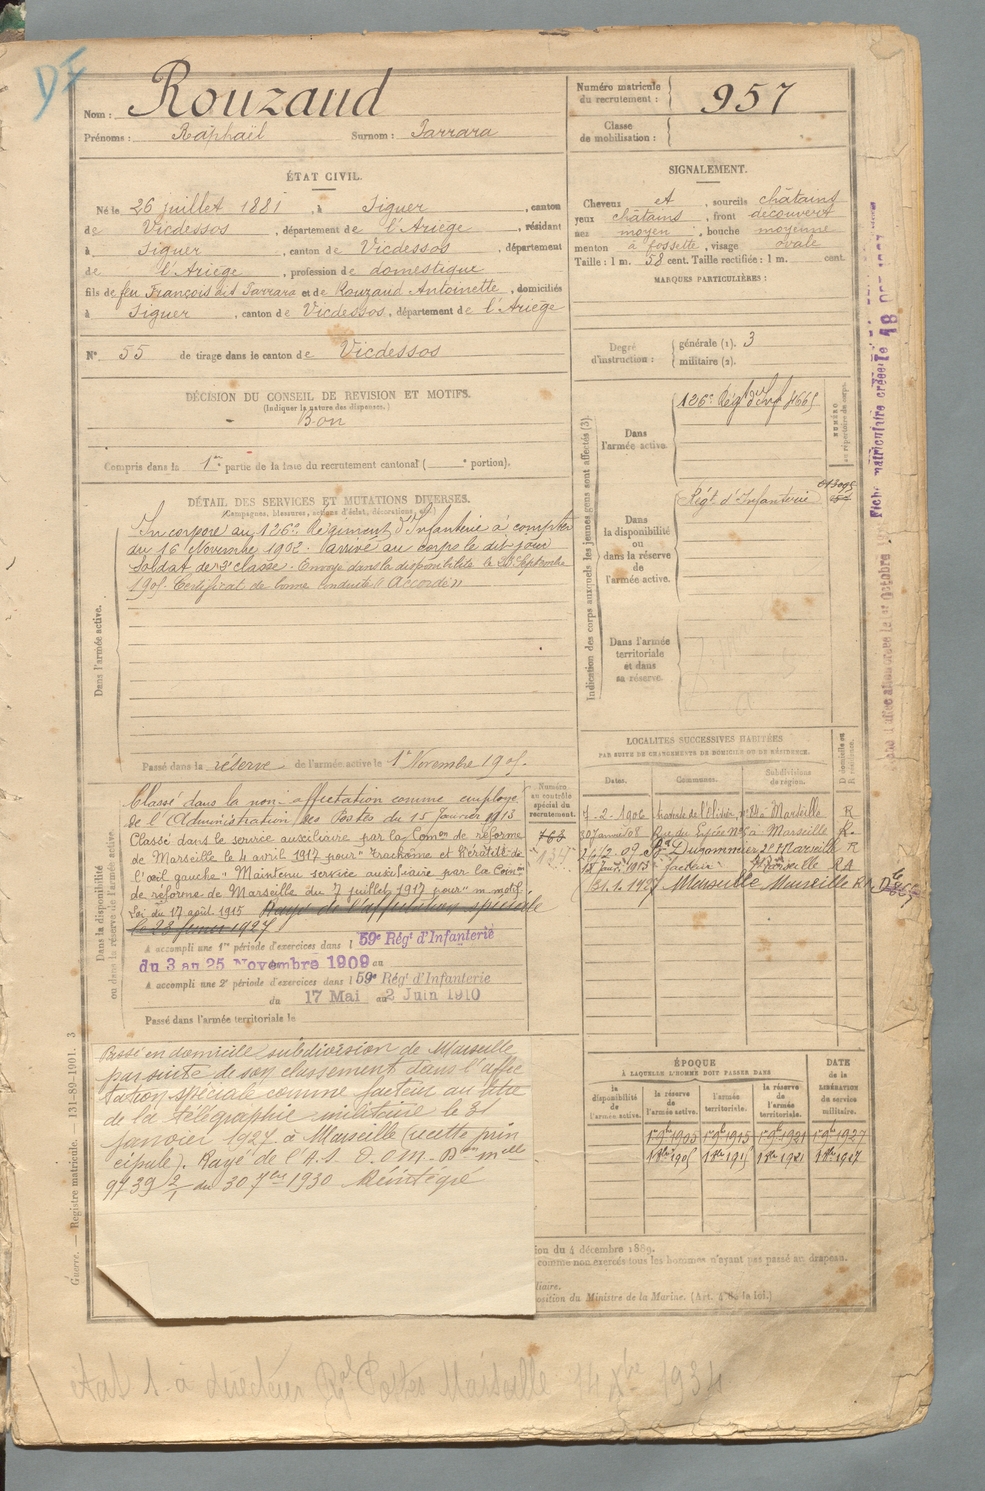 DF
Nom : Rouzaud
Prénoms : Raphaël Surnom : Tarrara
Numéro matricule du recrutement : 957
Classe de mobilisation :
ÉTAT CIVIL.
Né le 26 juillet 1881, à Siguer, canton
de Vicdessos, département de l'Ariège, résidant
à Siguer, canton de Vicdessos, département
de l'Ariège, profession de domestique
fils de feu François dit Tarrara et de Rouzaud Antoinette, domiciliés
à Siguer, canton de Vicdessos, département de l'Ariège
N° 55 de tirage dans le canton de Vicdessos
SIGNALEMENT.
Cheveux et, sourcils châtains
yeux châtains, front découvert
nez moyen, bouche moyenne
menton à fossette, visage ovale
Taille : 1 m. 58 cent. Taille rectifiée : 1 m. cent.
MARQUES PARTICULIÈRES :
Degré d'instruction : générale (1). 3
militaire (2).
DÉCISION DU CONSEIL DE REVISION ET MOTIFS.
(Indiquer la nature des dispenses.)
Bon
Compris dans la 1re partie de la liste du recrutement cantonal ( e portion).
DÉTAIL DES SERVICES ET MUTATIONS DIVERSES.
(Campagnes, blessures, actions d'éclat, décorations, etc.)
Dans l'armée active.
Incorporé au 126e Régiment d'Infanterie à compter
du 16 Novembre 1902. arrivé au corps le dit jour
Soldat de 2e classe. Envoyé dans la disponibilité le Septembre
1905. Certificat de bonne conduite "Accordé"
Passé dans la réserve de l'armée active le 1er Novembre 1905.
Indication des corps auxquels les jeunes gens sont affectés (3).
NUMÉRO au répertoire du corps.
Dans l'armée active.
126e Régt d'Inf 4665
Dans la disponibilité ou dans la réserve de l'armée active.
Régt d'Infanterie
Dans l'armée territoriale et dans sa réserve.
LOCALITÉS SUCCESSIVES HABITÉES
PAR SUITE DE CHANGEMENTS DE DOMICILE OU DE RÉSIDENCE.
Dates. Communes. Subdivisions de région. D domicile ou R résidence.
7-2-1906 Marseille R
30 Janvier 08 Marseille R
24/2.09 Dugommier 2 Marseille R
1913 Marseille RA
31.1.1927 Marseille Marseille
Dans la disponibilité ou dans la réserve de l'armée active.
Numéro au contrôle spécial du recrutement.
763
Classé dans la non-affectation comme employé
de l'Administration des Postes du 15 Janvier 1913
Classé dans le service auxiliaire par la Comon de réforme
de Marseille le 4 avril 1917 pour "Trachôme et Kératite de
l'œil gauche" Maintenu service auxiliaire par la Comon
de réforme de Marseille du 7 juillet 1917 pour "m. motif"
Loi du 17 août 1915 Rayé de l'affectation spéciale
A accompli une 1re période d'exercices dans l 59e Régt d'Infanterie
du 3 au 25 Novembre 1909 au
A accompli une 2e période d'exercices dans l 59e Régt d'Infanterie
du 17 Mai au 2 Juin 1910
Passé dans l'armée territoriale le
Passé en domicile subdivision de Marseille
par suite de son classement dans l'affec
tation spéciale comme facteur au titre
de la télégraphie militaire le 31
janvier 1927 à Marseille (recette prin
cipale). Rayé de l'A.S. D.O.M.
9739 2/1 du 30 7bre 1930 Réintégré
ÉPOQUE À LAQUELLE L'HOMME DOIT PASSER DANS
la disponibilité de l'armée active. la réserve de l'armée active. l'armée territoriale. la réserve de l'armée territoriale.
DATE de la LIBÉRATION du service militaire.
1er 9bre 1905 1er 9bre 1915 1er 9bre 1921 1er 9bre 1927
ion du 4 décembre 1889.
comme non exercés tous les hommes n'ayant pas passé au drapeau.
iliaire.
position du Ministre de la Marine. (Art. 4 de la loi.)
Guerre. — Registre matricule. 131-89-1901. 3
Fiche matriculaire créée le 18
état 1 à directeur Postes Marseille 14 Xbre 1934